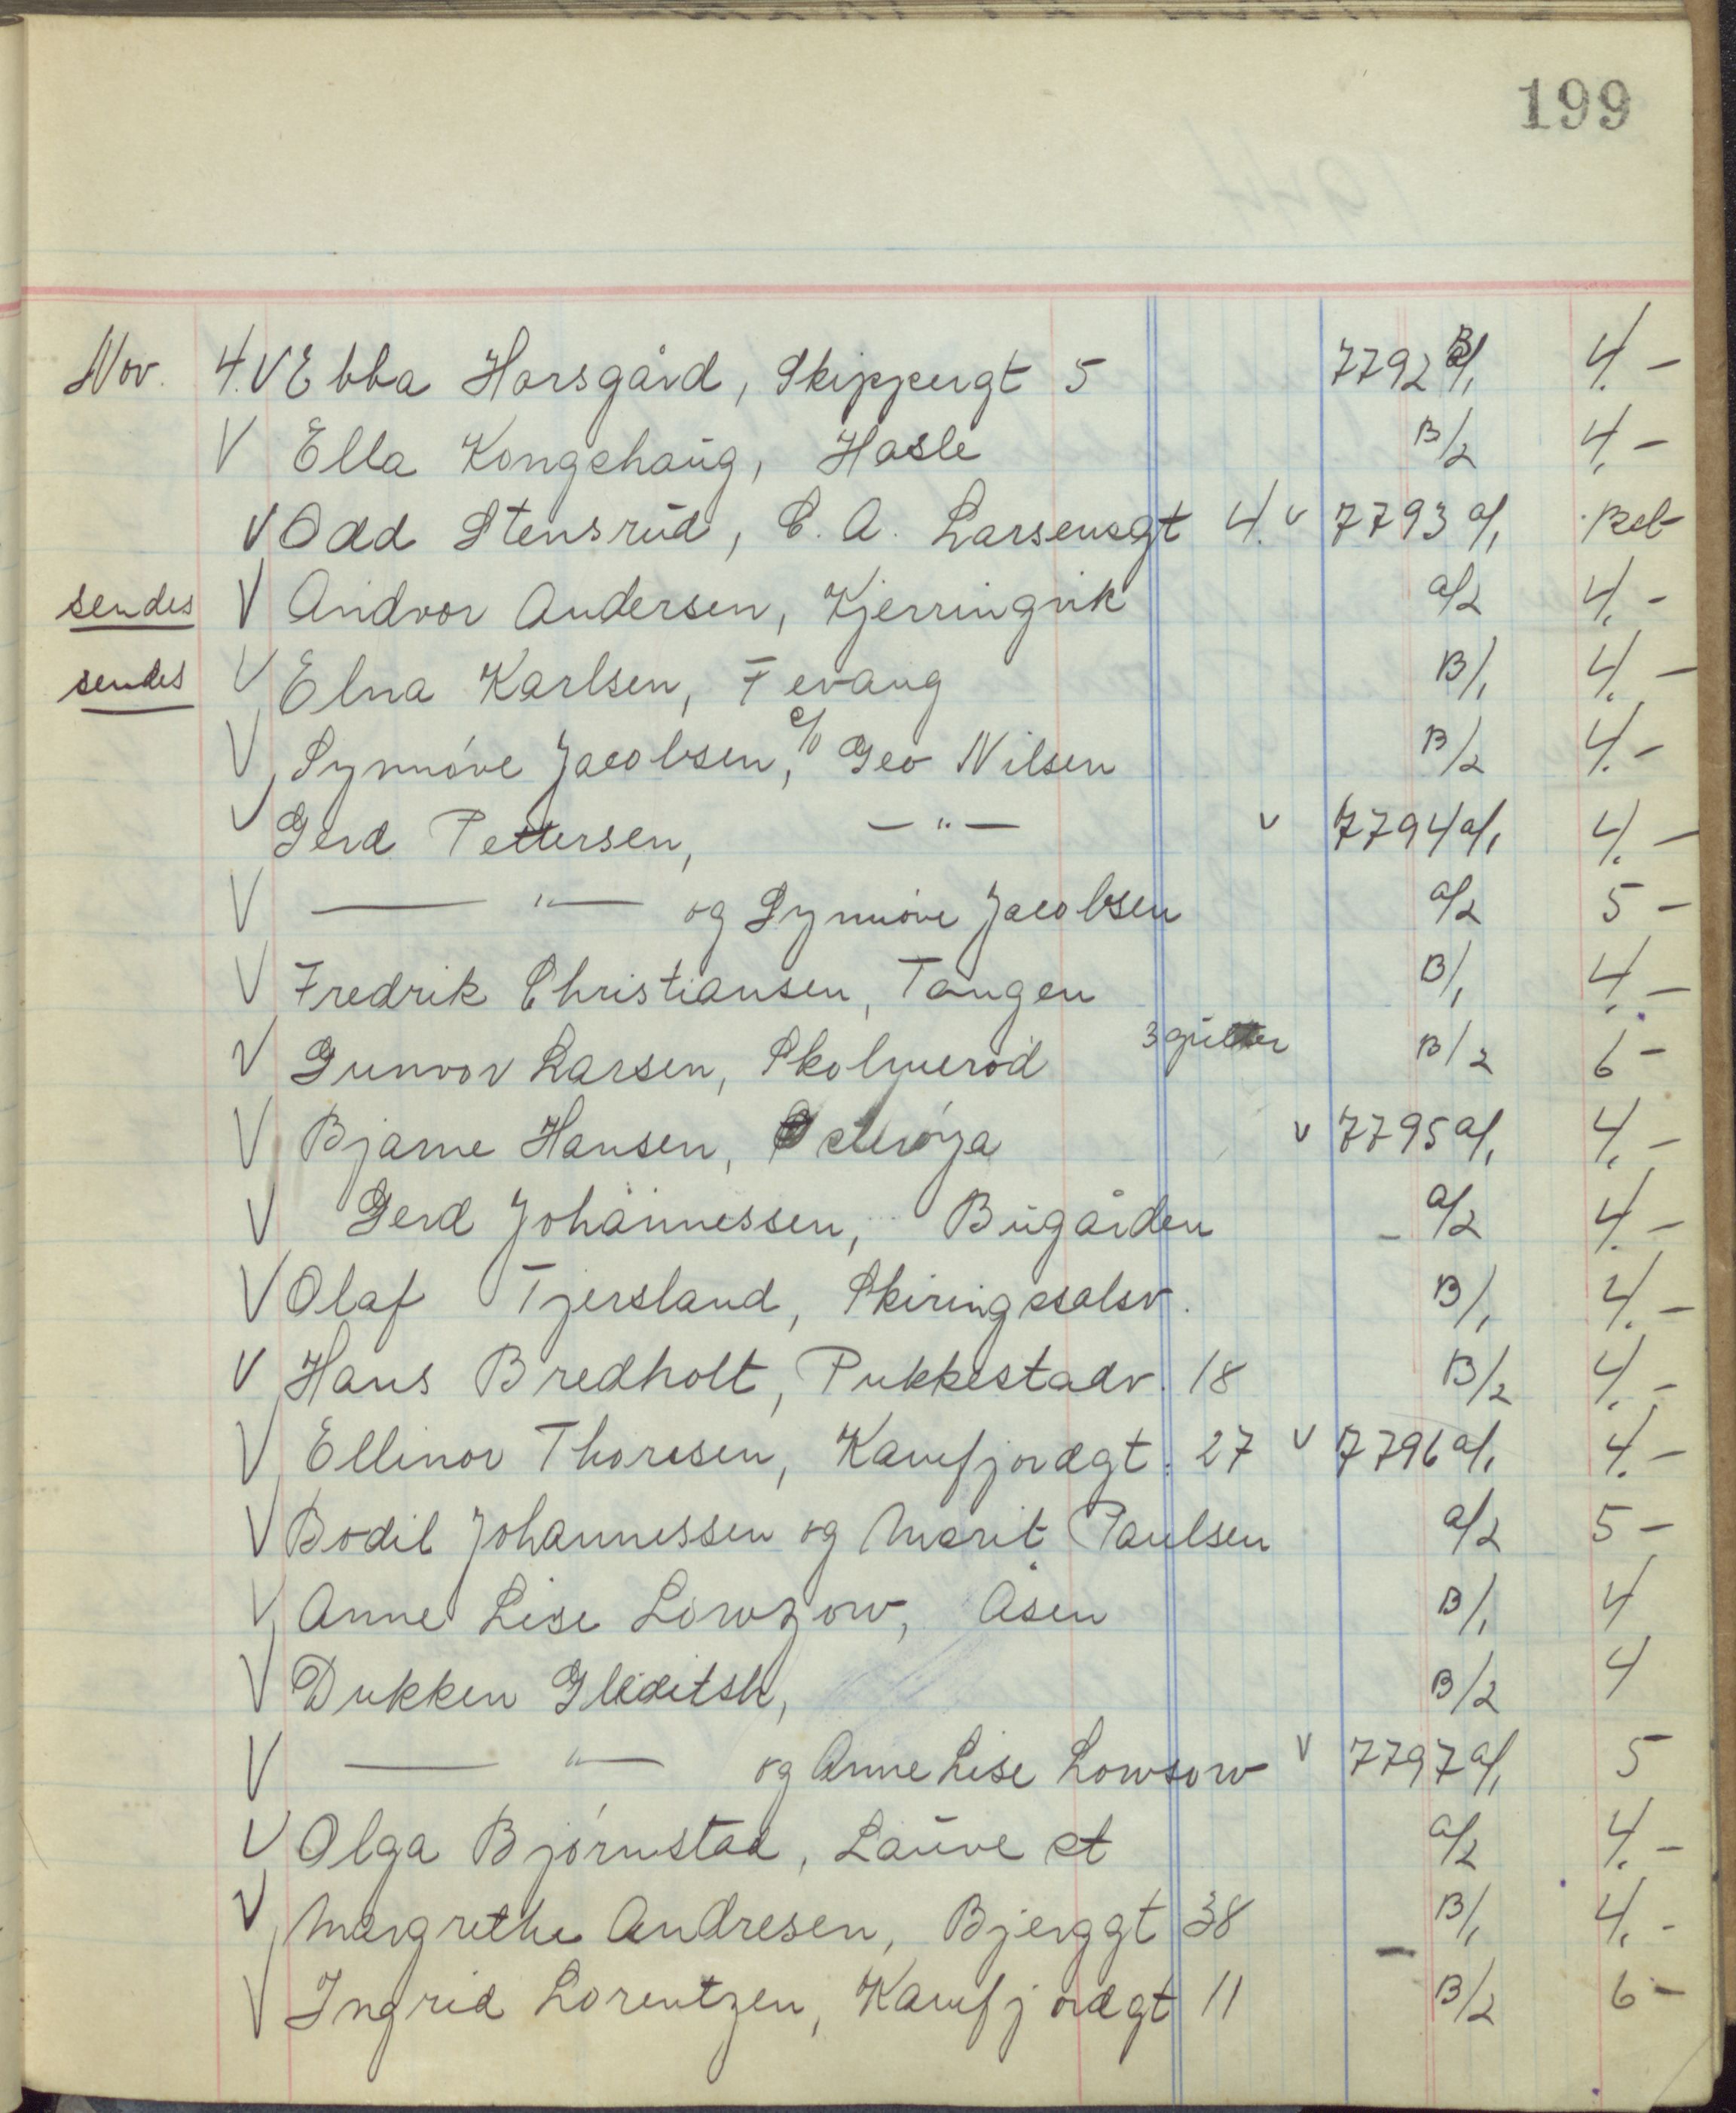 199
Nov. 4. V Ebba Horsgård, Skippergt 5 7792 B/1 4.-
V Ella Kongshaug, Hasle B/2 4.-
V Odd Stensrud, C. A. Larsensgt 4. v 7793 a/1
sendes V Andvor Andersen, Kjerringvik a/2 4.-
sendes V Elna Karlsen, Fevang B/1 4.-
V Synnøve Jacobsen, c/o Geo Nilsen B/2 4.-
V Gerd Pettersen, -"- v 7794 a/1 4.-
V -"- og Synnøve Jacobsen a/2 5-
V Fredrik Christiansen, Tangen B/1 4.-
V Gunvor Larsen, Skolmerød B/2 6-
V Bjarne Hansen, Østerøya v 7795 a/1 4.-
V Gerd Johannessen, Bugården - a/2 4.-
V Olaf Tjersland, Skiringssalsv. B/1 4.-
V Hans Bredholt, Pukkestadv. 18 B/2 4.-
V Ellinor Thoresen, Kamfjordgt. 27 v 7796 a/1 4.-
V Bodil Johannessen og Marit Paulsen a/2 5-
V Anne Lise Lowzow, Åsen B/1 4
V Dukken Gleditsh, B/2 4
V -"- og Anne Lise Lowsow v 7797 a/1 5
V Olga Bjørnstad, Lauve st a/2 4.-
V Margrethe Andresen, Bjerggt 38 B/1 4.-
V Ingrid Lorentzen, Kamfjordgt 11 - B/2 6-